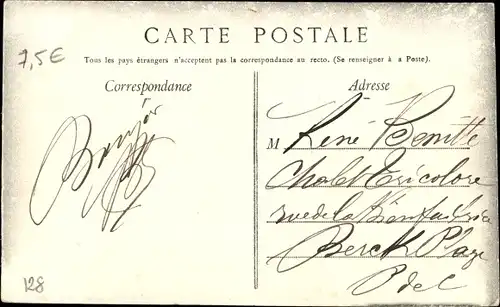 7,5€
CARTE POSTALE
Tous les pays étrangers n'acceptent pas la correspondance au recto. (Se renseigner à a Poste).
Correspondance
Adresse
M René
Chalet Tricolore
rue de la Bienfaisance
Berck Plage
P de C
128